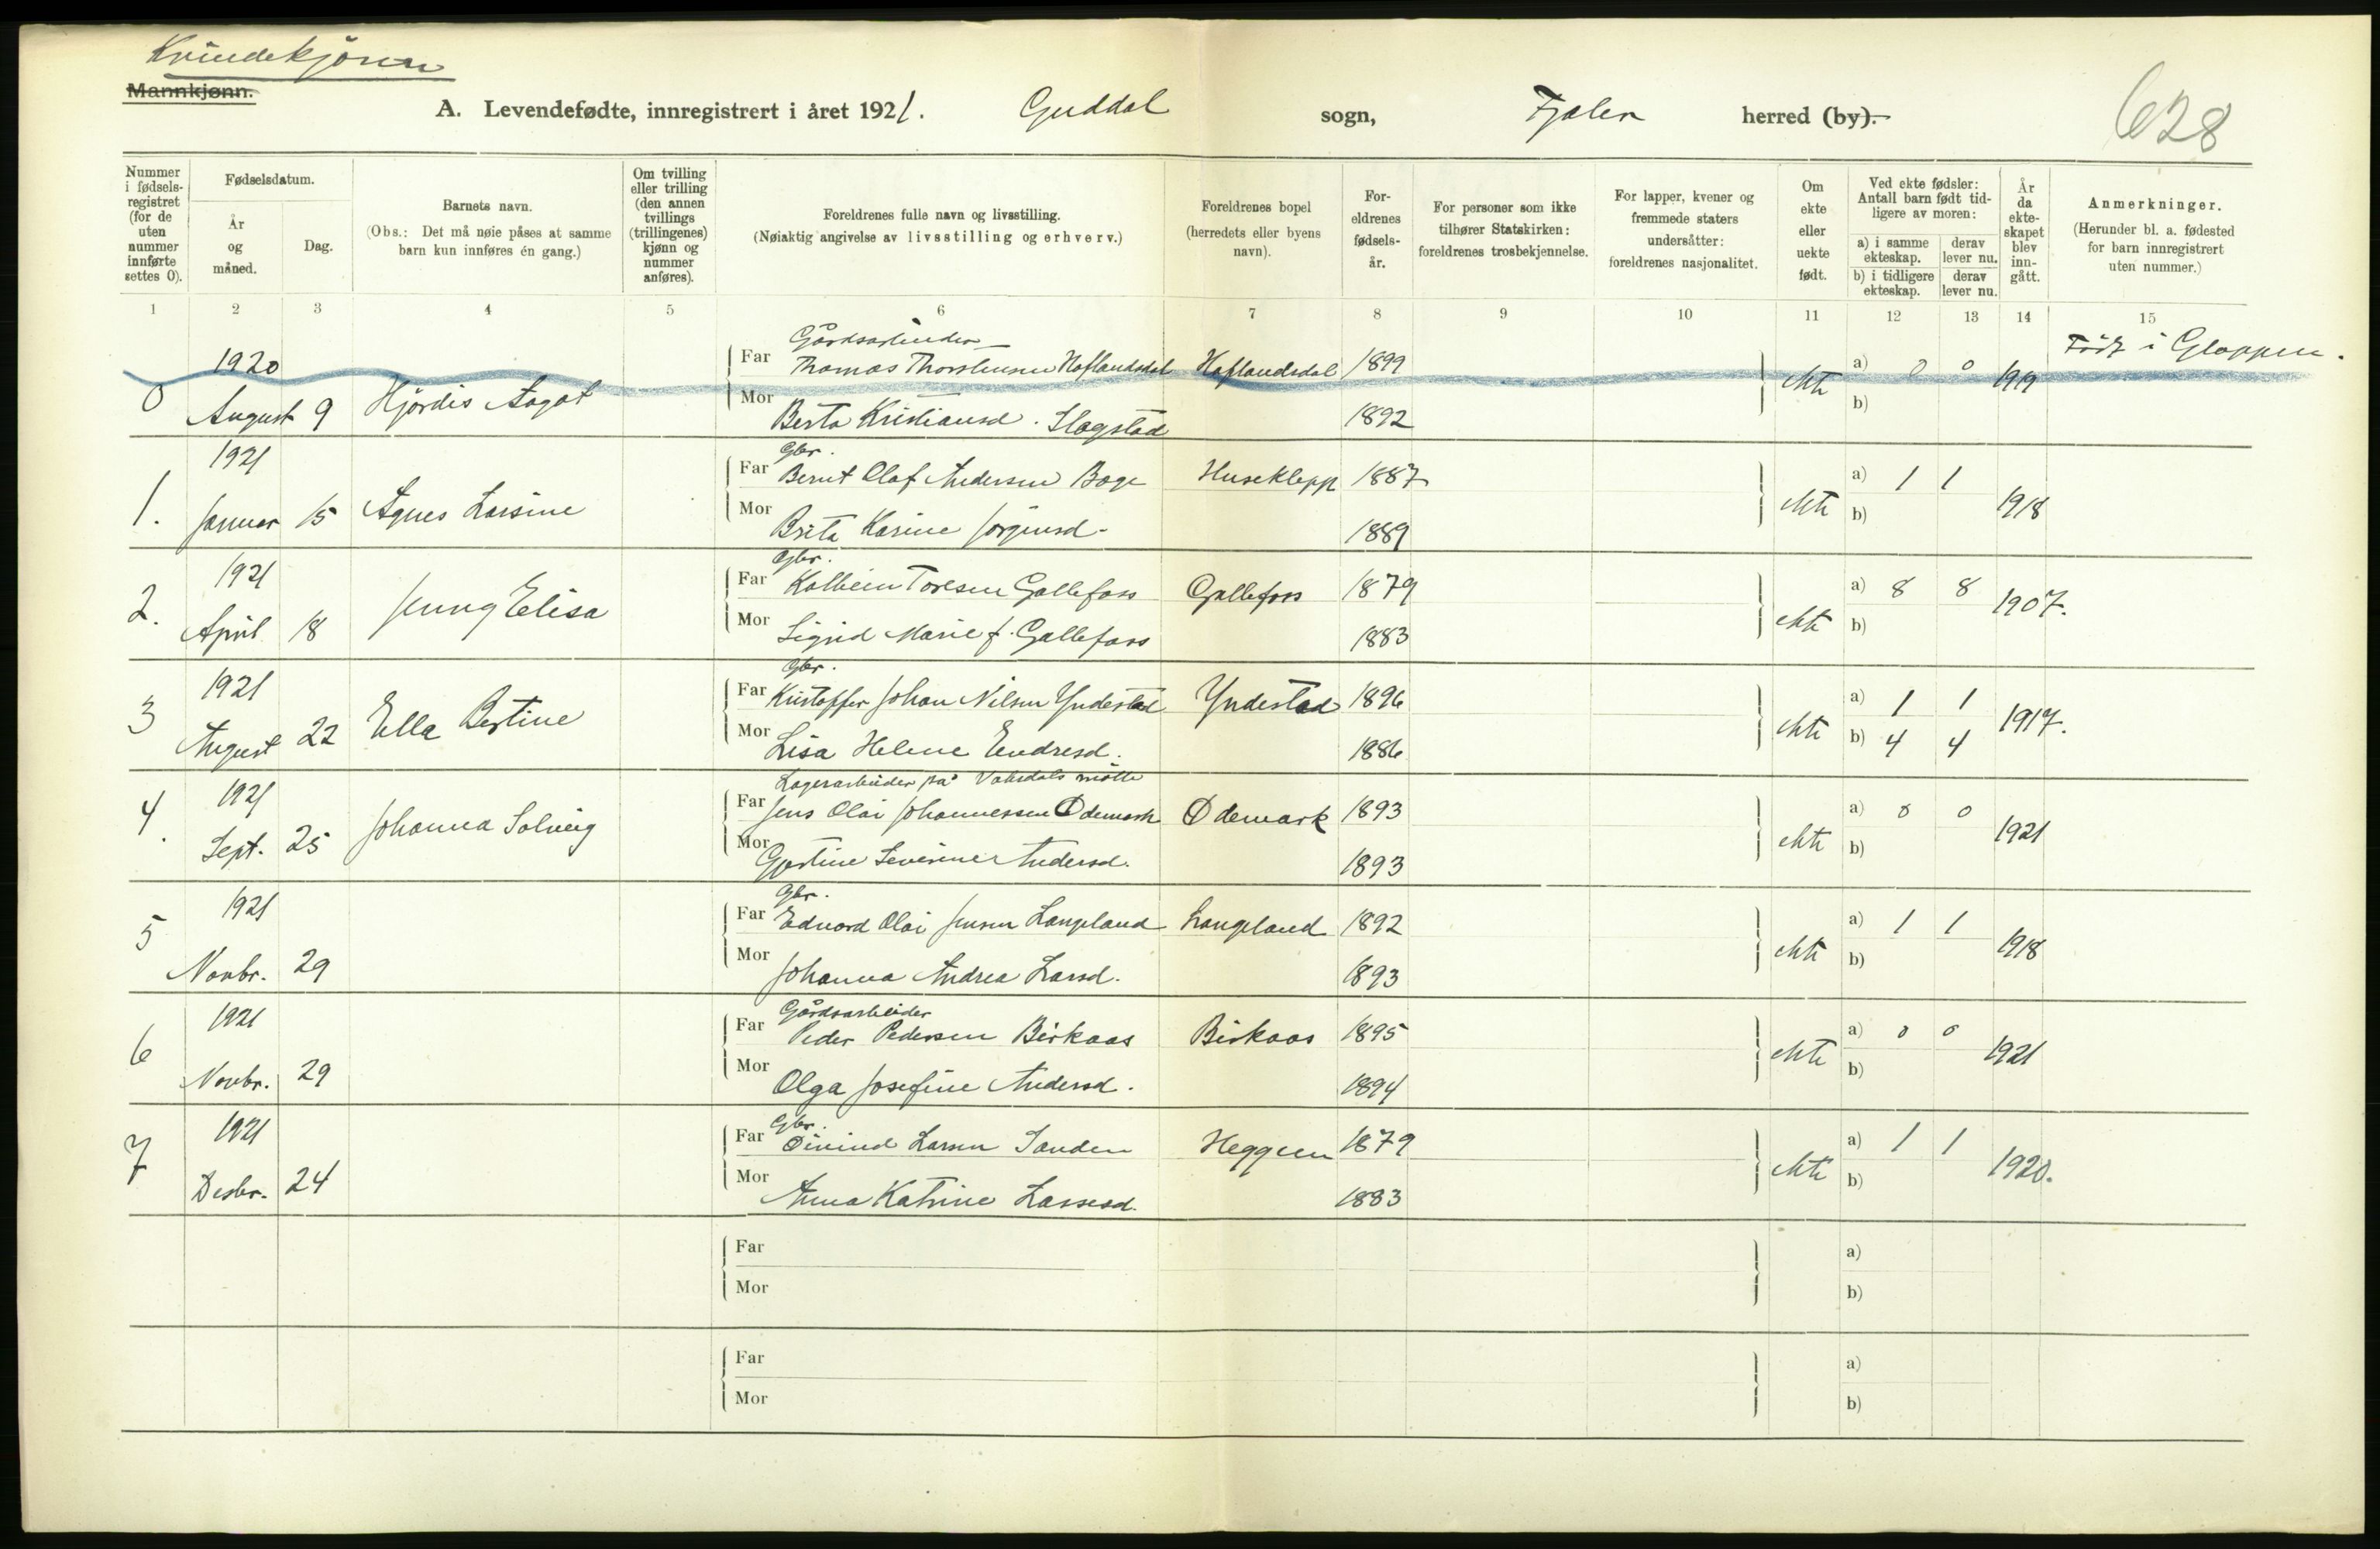 Kvindekjønn
Mannkjønn.
A. Levendefødte, innregistrert i året 1921. Guddal sogn, Fjaler herred (by).
628
Nummer i fødselsregistret (for de uten nummer innførte settes 0).
Fødselsdatum.
År og måned.
Dag.
Barnets navn.
(Obs.: Det må nøie påses at samme barn kun innføres én gang.)
Om tvilling eller trilling (den annen tvillings (trillingenes) kjønn og nummer anføres).
Foreldrenes fulle navn og livsstilling.
(Nøiaktig angivelse av livsstilling og erhverv.)
Foreldrenes bopel (herredets eller byens navn).
For-eldrenes fødsels-år.
For personer som ikke tilhører Statskirken: foreldrenes trosbekjennelse.
For lapper, kvener og fremmede staters undersåtter: foreldrenes nasjonalitet.
Om ekte eller uekte født.
Ved ekte fødsler: Antall barn født tid-ligere av moren:
a) i samme ekteskap.
derav lever nu.
b) i tidligere ekteskap.
derav lever nu.
År da ekte-skapet blev inn-gått.
Anmerkninger.
(Herunder bl. a. fødested for barn innregistrert uten nummer.)
1 2 3 4 5 6 7 8 9 10 11 12 13 14 15
Gårdsarbeider
1920 Far Thomas Thorstensen Haflandsdal Haflandsdal 1899 a) 0 0 1919 Født i Gloppen.
0 August 9 Hjørdis Aagot Mor Berta Kristiansd. Slagstad 1892 ekte b)
Gbr.
1921 Far Bernt Olaf Andersen Boge Huseklepp 1887 a) 1 1
1. Januar 15 Agnes Larsine Mor Brita Karine Jørgensd. 1889 ekte b) 1918
Gbr.
1921 Far Kolbein Toresen Gallefoss Gallefoss 1879 a) 8 8 1907.
2. April 18 Jenny Elisa Mor Sigrid Marie f. Gallefoss 1883 ekte b)
Gbr.
1921 Far Kristoffer Johan Nilsen Yndestad Yndestad 1896 a) 1 1 1917.
3 August 22 Ella Bertine Mor Lisa Helene Endresd. 1886 ekte b) 4 4
Lagerarbeider på Vaksdals mølle
4. 1921 Far Jens Olai Johannessen Ødemark Ødemark 1893 a) 0 0
Sept. 25 Johanna Solveig Mor Gjertine Severine Andersd. 1893 ekte b) 1921
Gbr.
1921 Far Edvard Olai Jensen Langeland Langeland 1892 a) 1 1
5 Novbr. 29 Mor Johanna Andrea Larsd. 1893 ekte b) 1918
Gårdsarbeider
1921 Far Peder Pedersen Birkaas Birkaas 1895 a) 0 0
6 Novbr. 29 Mor Olga Josefine Andersd. 1894 ekte b) 1921
Gbr.
1921 Far Øivind Larsen Sanden Heggeen 1879 a) 1 1
7 Desbr. 24 Mor Anna Katrine Lassesd. 1883 ekte b) 1920.
Far a)
Mor b)
Far a)
Mor b)